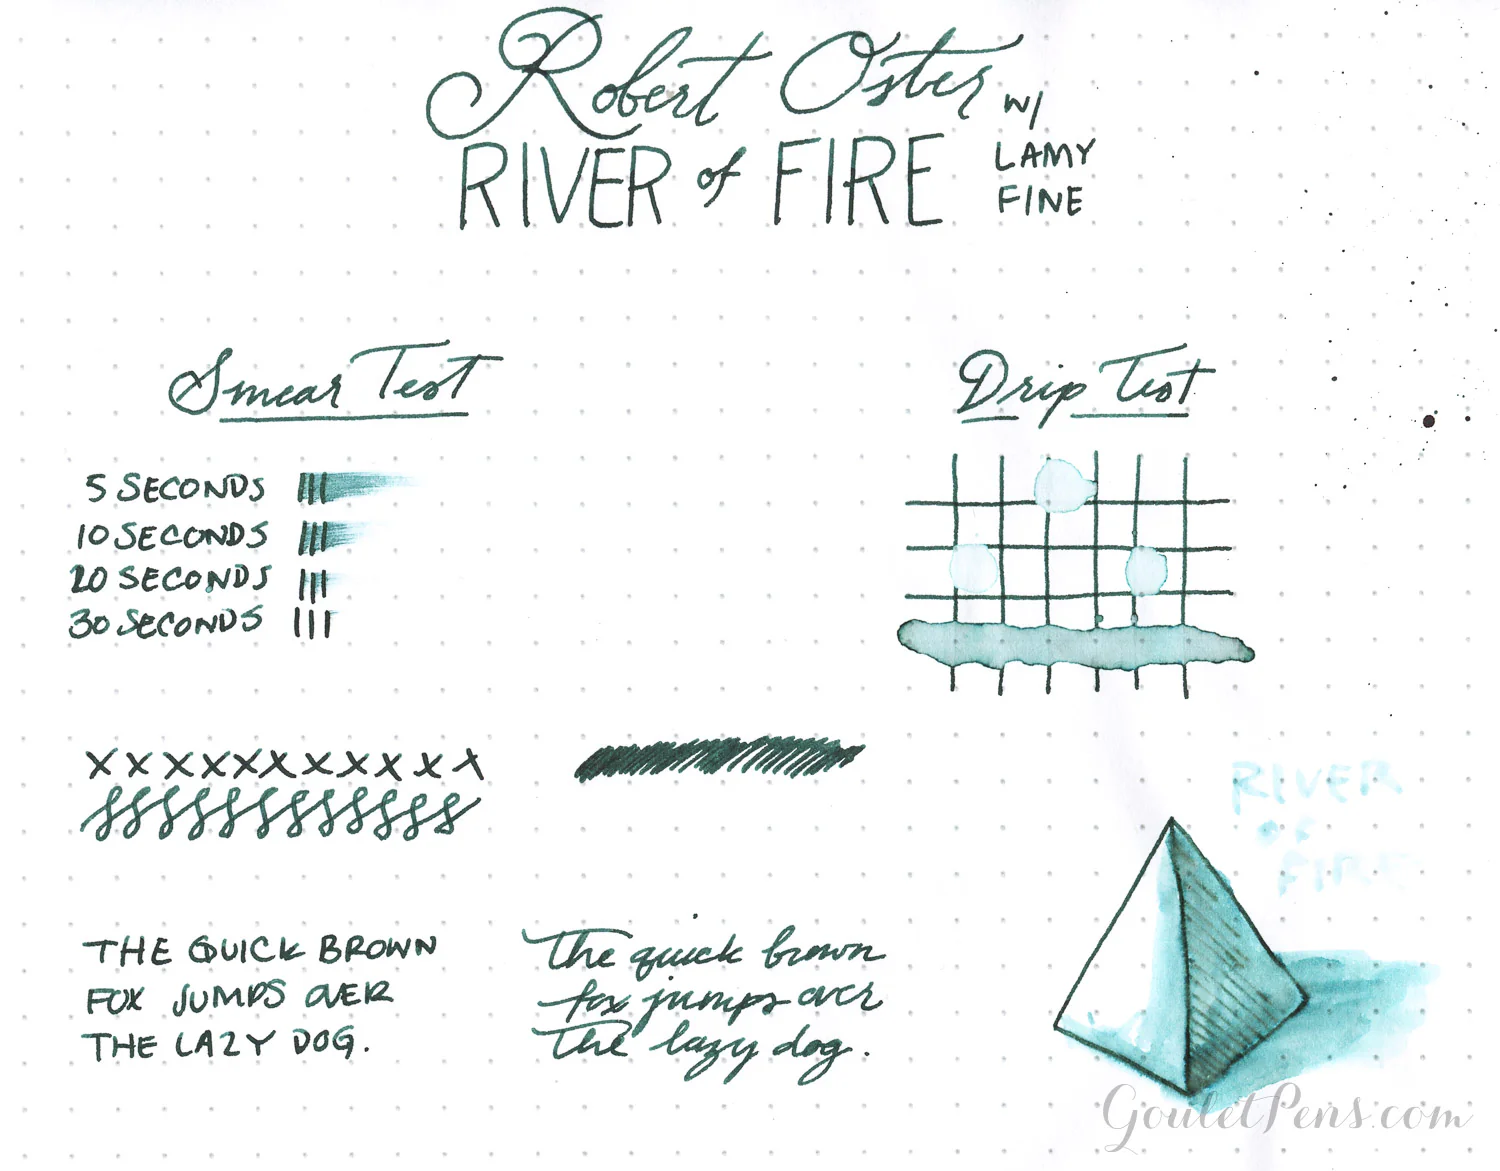 Robert Oster w/
RIVER of FIRE LAMY
FINE
Smear Test
Drip Test
5 SECONDS
10 SECONDS
20 SECONDS
30 SECONDS
x x x x x x x x x x x
RIVER
of
FIRE
THE QUICK BROWN
FOX JUMPS OVER
THE LAZY DOG.
The quick brown
fox jumps over
The lazy dog.
GouletPens.com